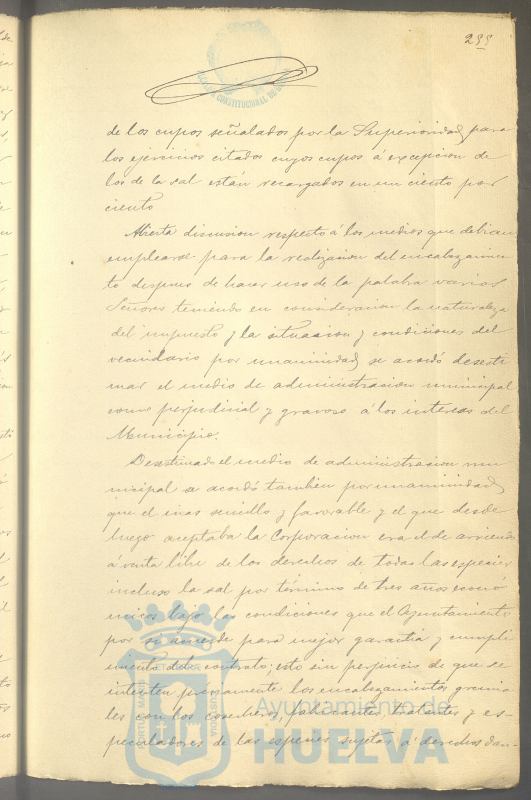 255
de los cupos señalados por la Superioridad para
los ejercicios citados cuyos cupos á excepcion de
los de la sal están recargados en un ciento por
ciento
Abierta discusion respecto á los medios que debian
emplearse para la realizacion del encabezamien
to despues de hacer uso de la palabra varios
Señores teniendo en consideracion la naturaleza
del impuesto y la situacion y condiciones del
vecindario por unanimidad se acordó desesti
mar el medio de administracion municipal
como perjudicial y gravoso á los intereses del
Municipio.
Desestimado el medio de administracion mu
nicipal se acordó tambien por unanimidad
que el mas sencillo y favorable y el que desde
luego aceptaba la Corporacion era el de arriendo
á venta libre de los derechos de todas las especies
incluso la sal por término de tres años econó
micos bajo las condiciones que el Ayuntamiento
por si acuerde para mejor garantia y cumpli
miento del contrato; esto sin perjuicio de que se
intenten previamente los encabezamientos gremia
les con los cosecheros, fabricantes, tratantes y es-
peculadores de las especies sujetas á derechos
Ayuntamiento de
HUELVA